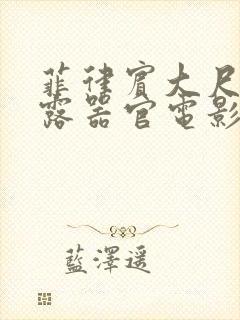 菲律宾大尺
露器官電影
藍澤遥